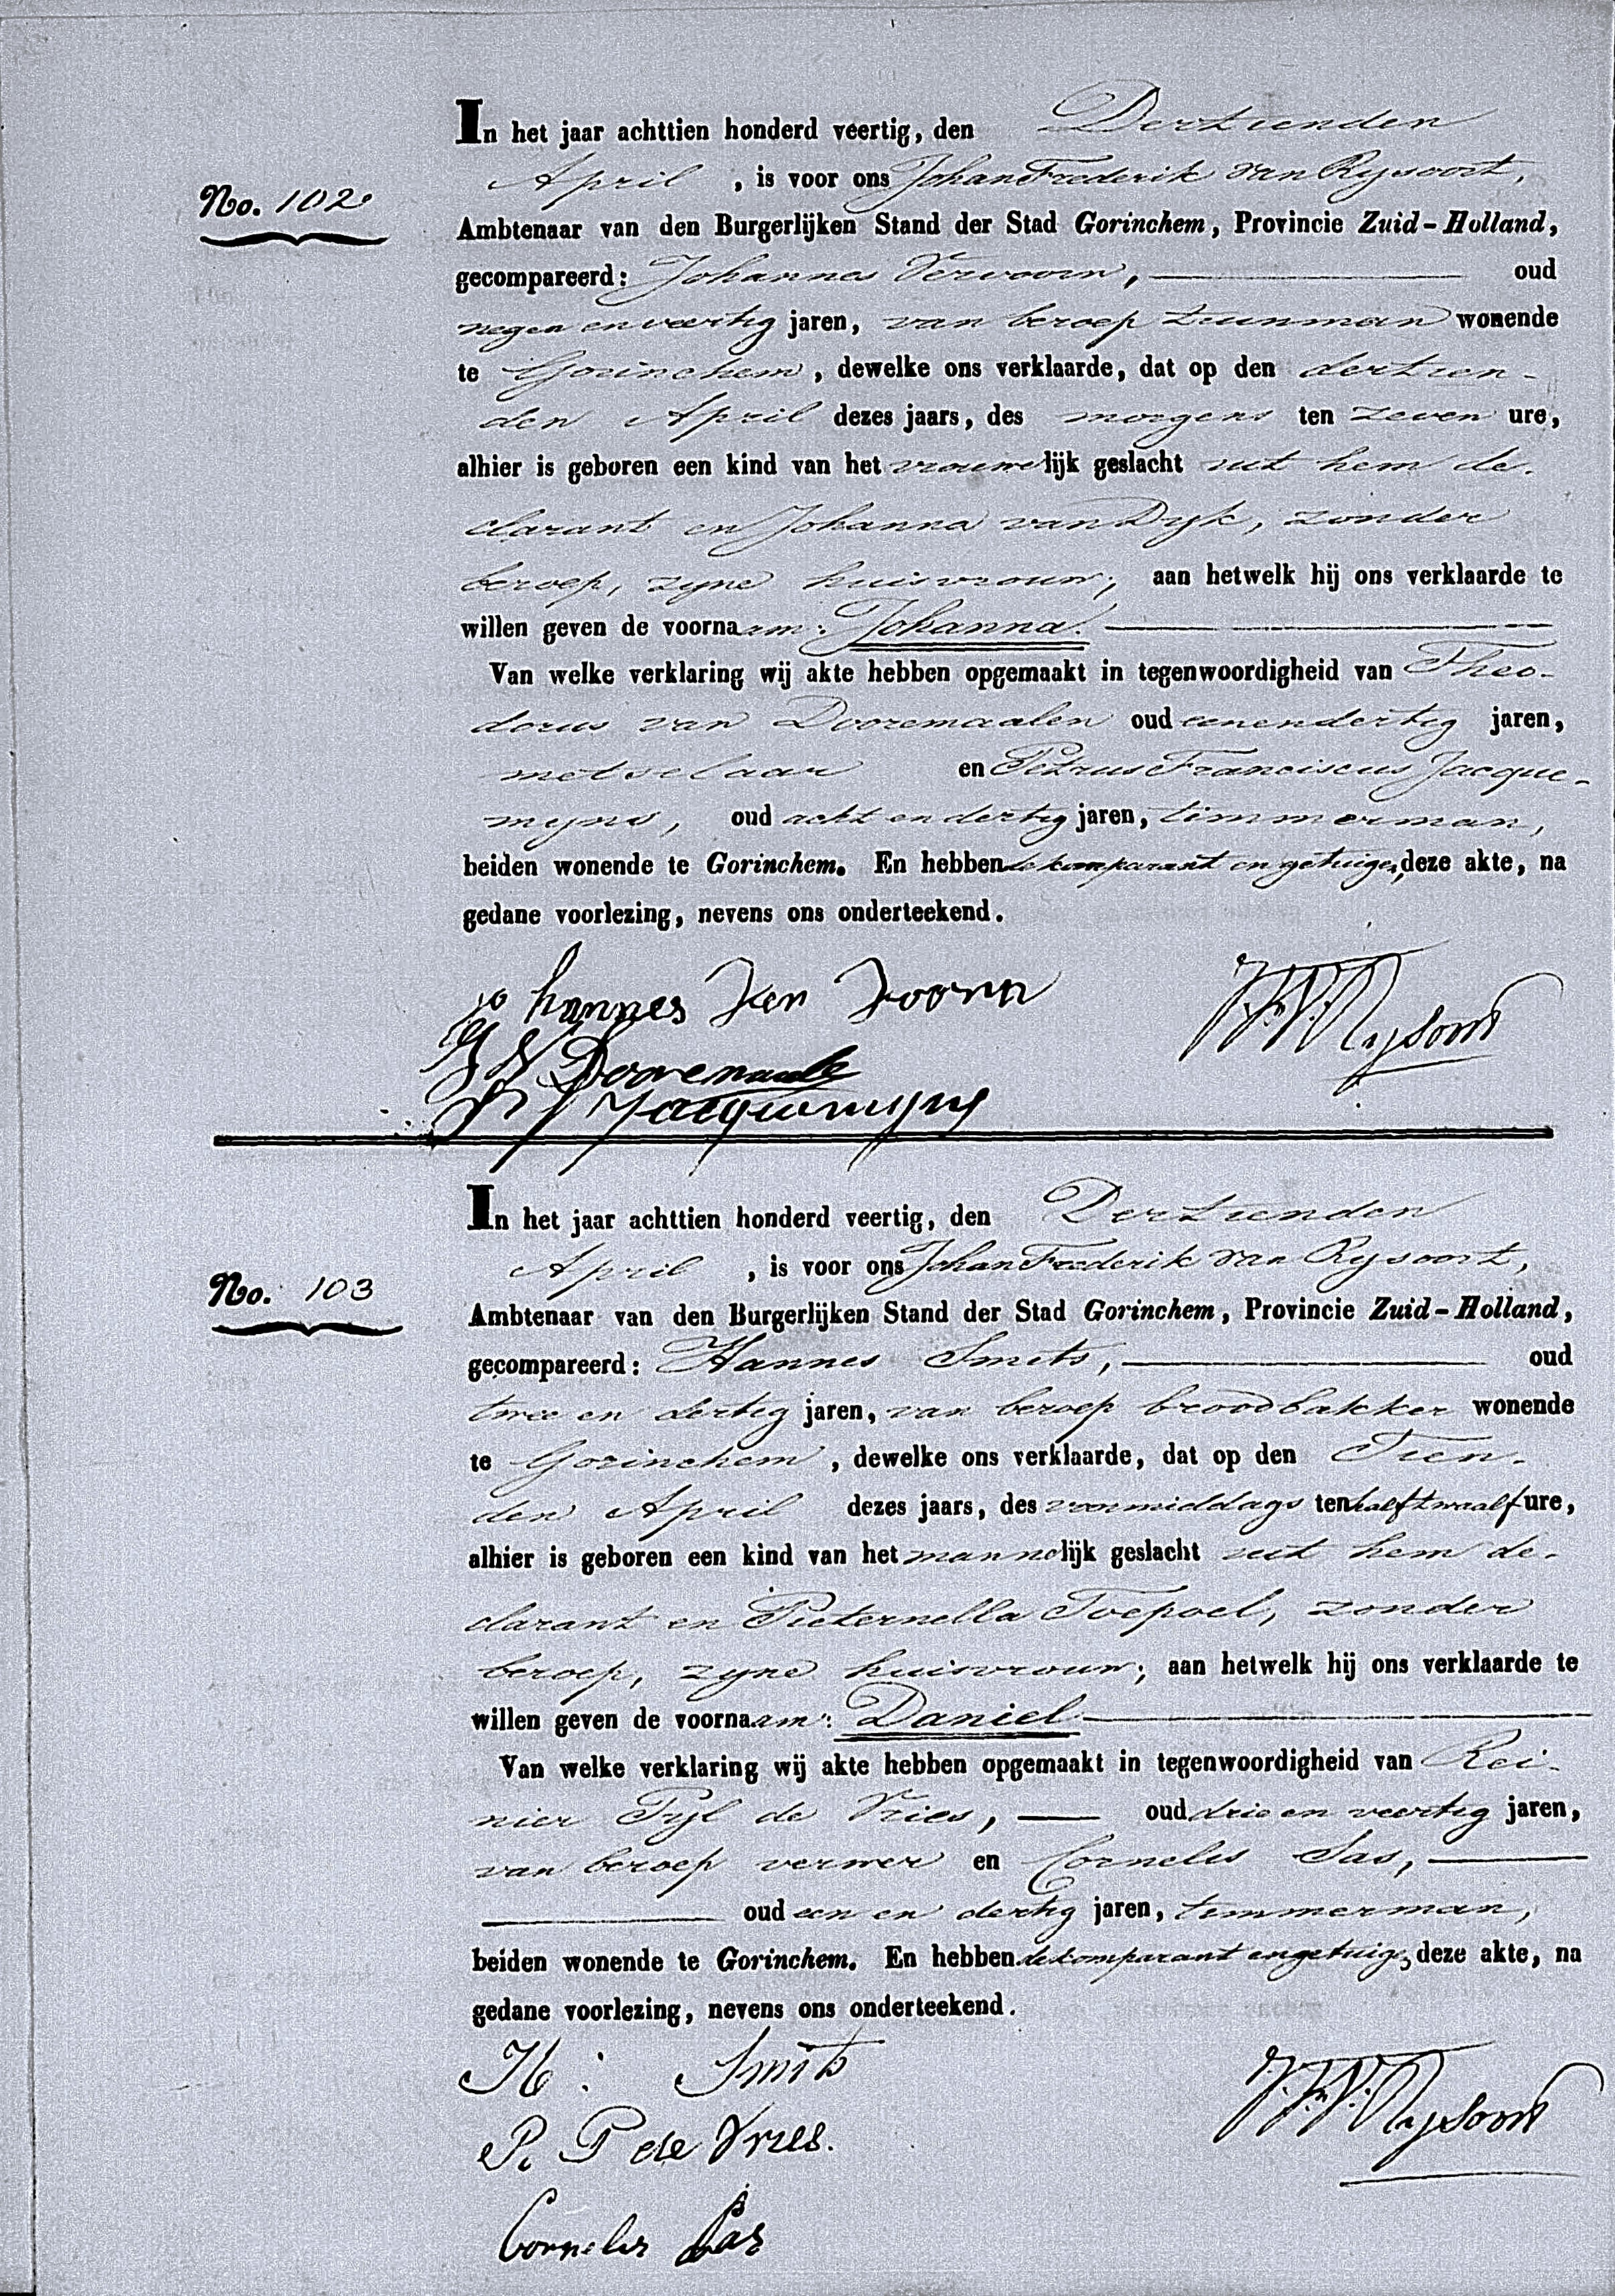 In het jaar achttien honderd veertig, den Dertienden
April , is voor ons Johan Frederik van Rysoort,
No. 102
Ambtenaar van den Burgerlijken Stand der Stad Gorinchem, Provincie Zuid-Holland,
gecompareerd: Johannes Vervoorn, oud
negen en veertig jaren, van beroep tuinman wonende
te Gorinchem, dewelke ons verklaarde, dat op den dertien-
den April dezes jaars, des morgens ten zeven ure,
alhier is geboren een kind van het vrouwelijk geslacht uit hem de-
clarant en Johanna van Dyk, zonder
beroep, zyne huisvrouw; aan hetwelk hij ons verklaarde te
willen geven de voornaam: Johanna.
Van welke verklaring wij akte hebben opgemaakt in tegenwoordigheid van Theo-
dorus van Dooremaalen oud eenendertig jaren,
metselaar en Petrus Franciscus Jacque-
myns, oud acht en dertig jaren, timmerman,
beiden wonende te Gorinchem. En hebben de komparant en getuigen, deze akte, na
gedane voorlezing, nevens ons onderteekend.
johannes Ver voorn
J.F.V. Rysoort
Dooremaale
Jacquemyns
In het jaar achttien honderd veertig, den Dertienden
April , is voor ons Johan Frederik van Rysoort,
No. 103
Ambtenaar van den Burgerlijken Stand der Stad Gorinchem, Provincie Zuid-Holland,
gecompareerd: Hannes Smits, oud
twee en dertig jaren, van beroep broodbakker wonende
te Gorinchem, dewelke ons verklaarde, dat op den Tien-
den April dezes jaars, des voormiddags ten half twaalf ure,
alhier is geboren een kind van het mannelijk geslacht uit hem de-
clarant en Pieternella Toepoel, zonder
beroep, zyne huisvrouw; aan hetwelk hij ons verklaarde te
willen geven de voornaam: Daniel
Van welke verklaring wij akte hebben opgemaakt in tegenwoordigheid van Rei-
nier Pyl de Vries, oud drie en veertig jaren,
van beroep verwer en Cornelis Sas,
oud een en dertig jaren, timmerman,
beiden wonende te Gorinchem. En hebben de komparant en getuigen, deze akte, na
gedane voorlezing, nevens ons onderteekend.
H: Smits
J.F.V. Rysoort
R. P de Vries.
Cornelis Sas